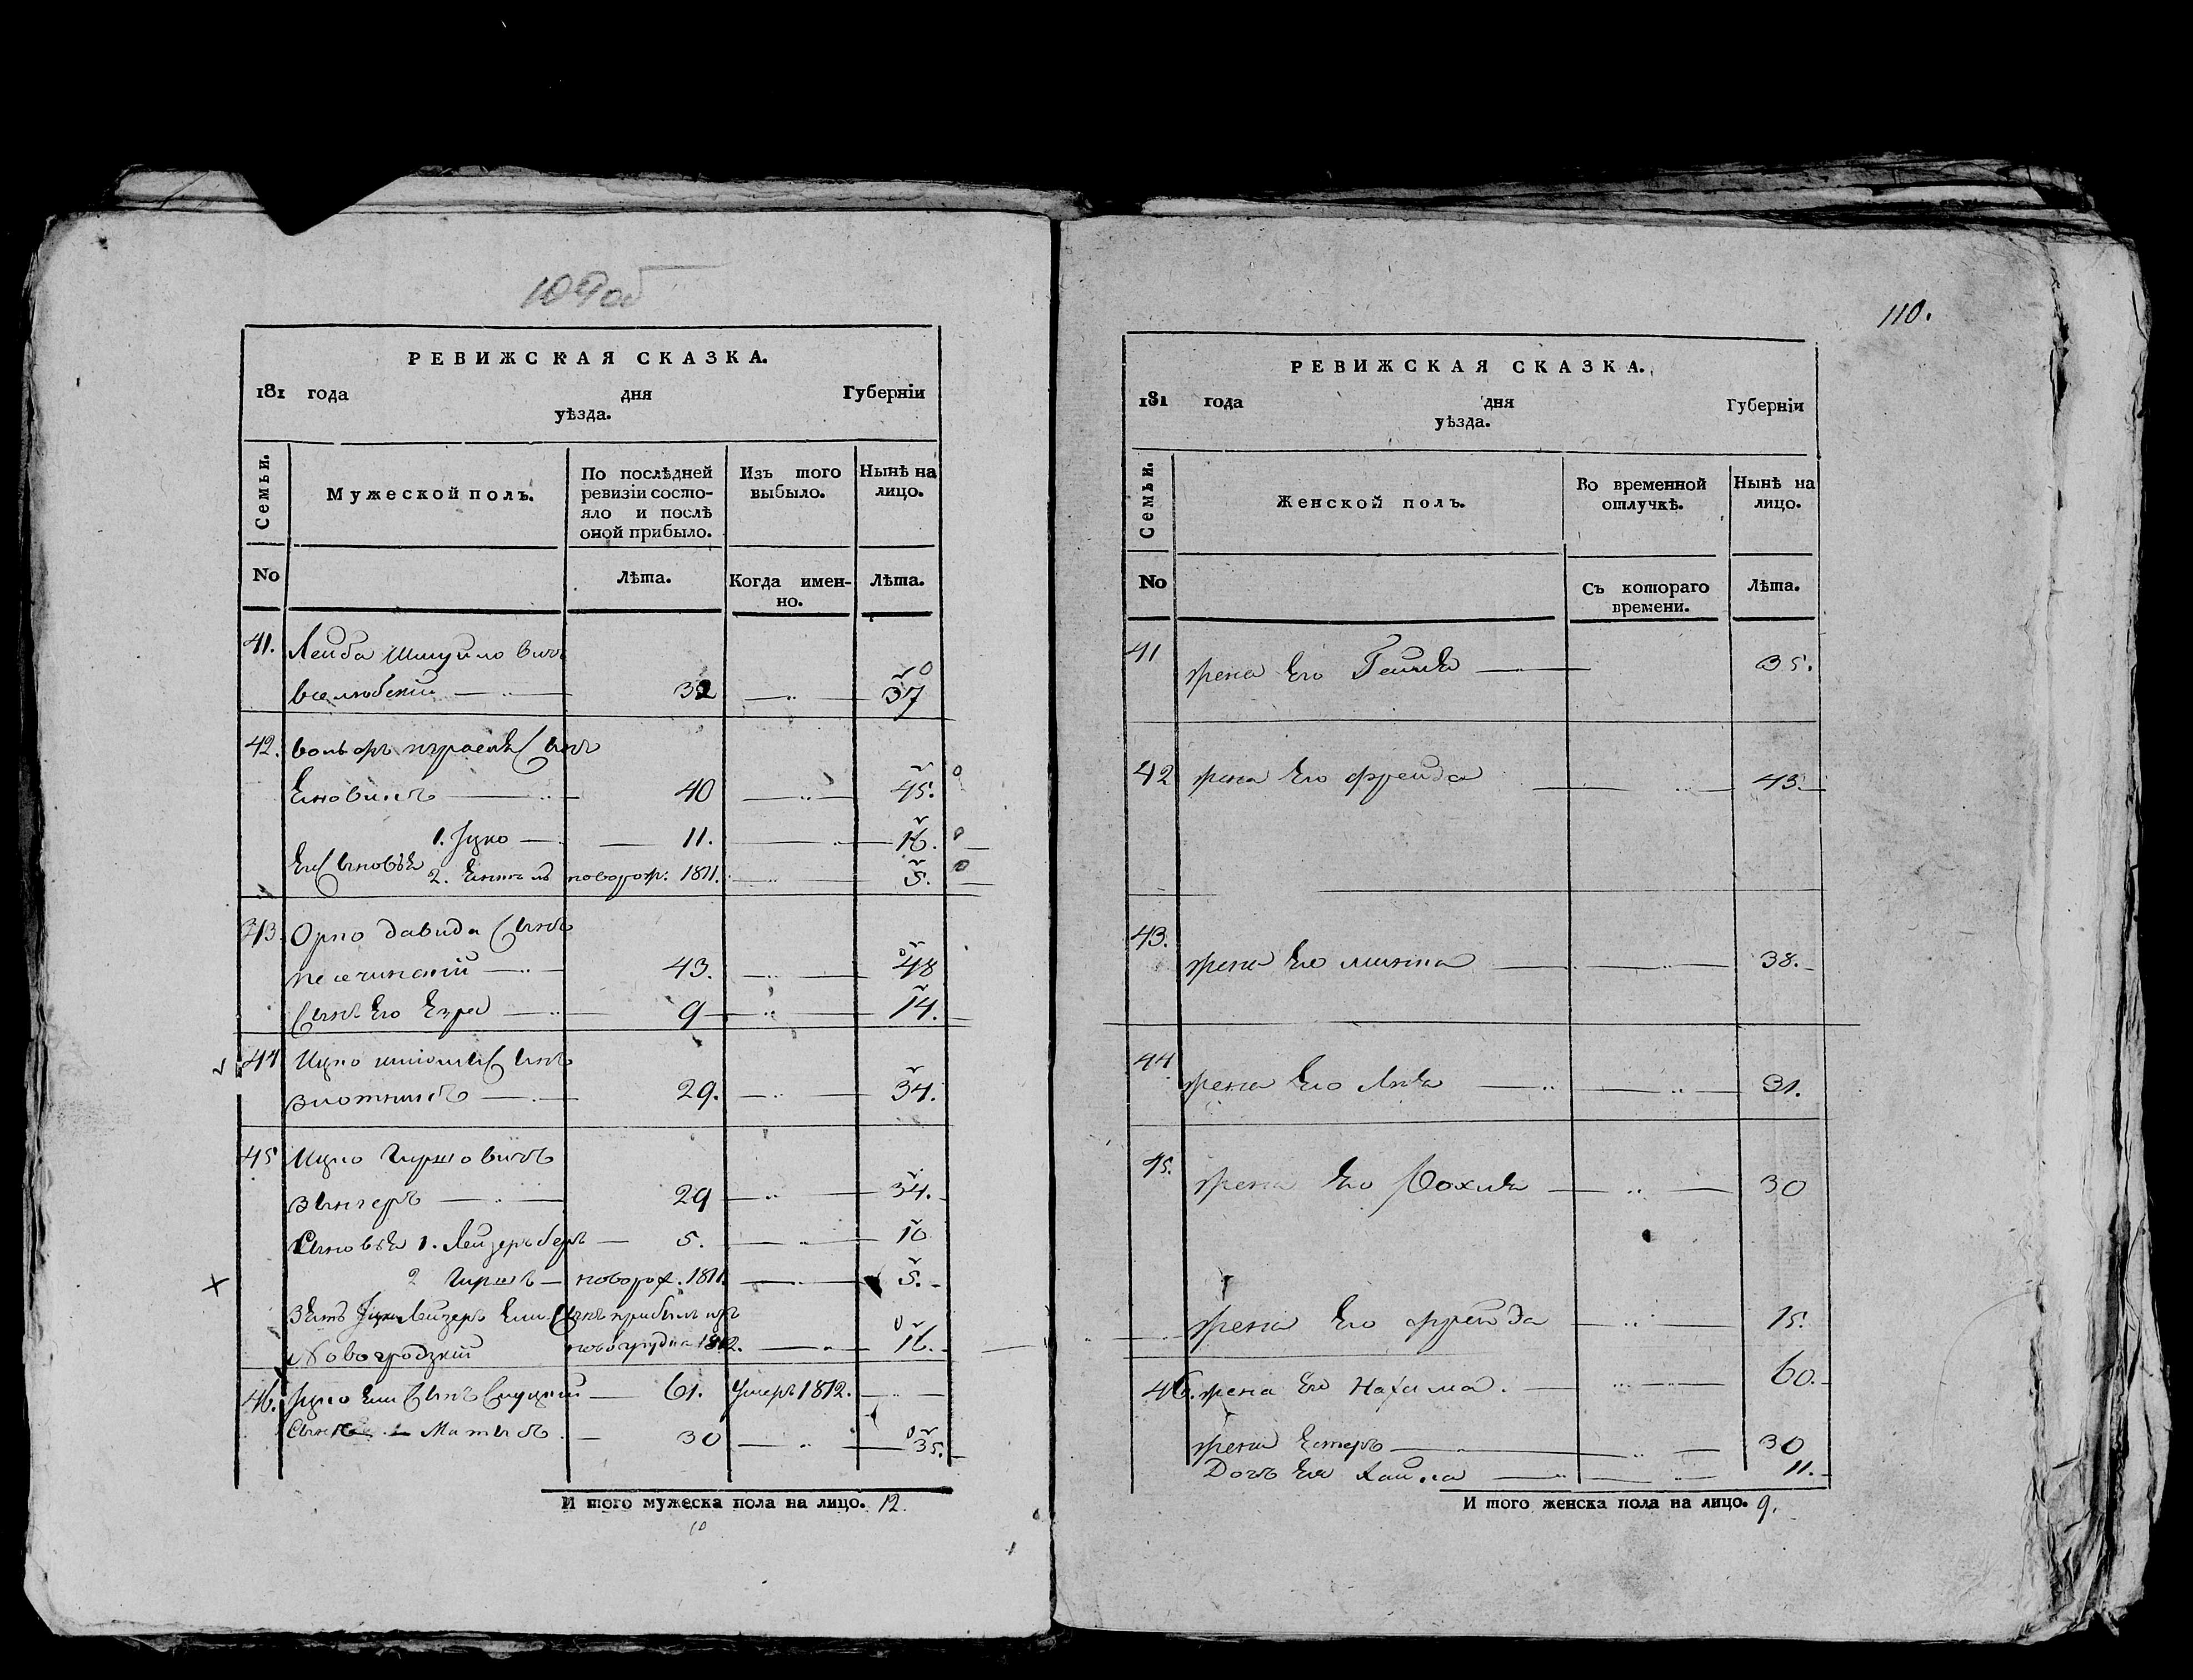 109 об
РЕВИЖСКАЯ СКАЗКА.
181 года дня Губерніи
уѣзда.
Семьи.
Мужеской полъ.
По послѣдней ревизіи состояло и послѣ оной прибыло.
Изъ того выбыло.
Нынѣ на лицо.
No
Лѣта.
Когда именно.
Лѣта.
41. Лейба Шмуйловичъ
32 37
42. Вольфъ сынъ
40 45.
1. Іцко 11. 16.
Его Сыновья 2. новорож. 1811. 5.
43. Орко Давида Сынъ
43. 48
Сынъ Его 9 14.
44 Ицко Сынъ
Злотникъ 29. 34.
45 Ицко Гиршовичъ
Зингеръ 29 34.
Сыновья 1. Лейзеръ беръ 5. 10
2 Гиршъ новорож. 1811. 5.
Зять Лейзеръ Сынъ прибылъ изъ
Новогродзкій новогрудка 1812. 16.
46. Іцко Сынъ Слуцкій 61. Умеръ 1812.
Сынъ Матысъ 30 35.
И того мужеска пола на лицо. 12.
110.
РЕВИЖСКАЯ СКАЗКА.
181 года дня Губерніи
уѣзда.
Семьи.
Женской полъ.
Во временной отлучкѣ.
Нынѣ на лицо.
No
Съ котораго времени.
Лѣта.
41 жена Его 35.
42 жена Его фрейда 43.
43. жена Его 38.
44 жена Его 31.
45. жена Его 30
жена Его фрейда 15.
46. жена Его Нахама. 60.
жена Естеръ 30
Дочь Ея 11.
И того женска пола на лицо. 9.